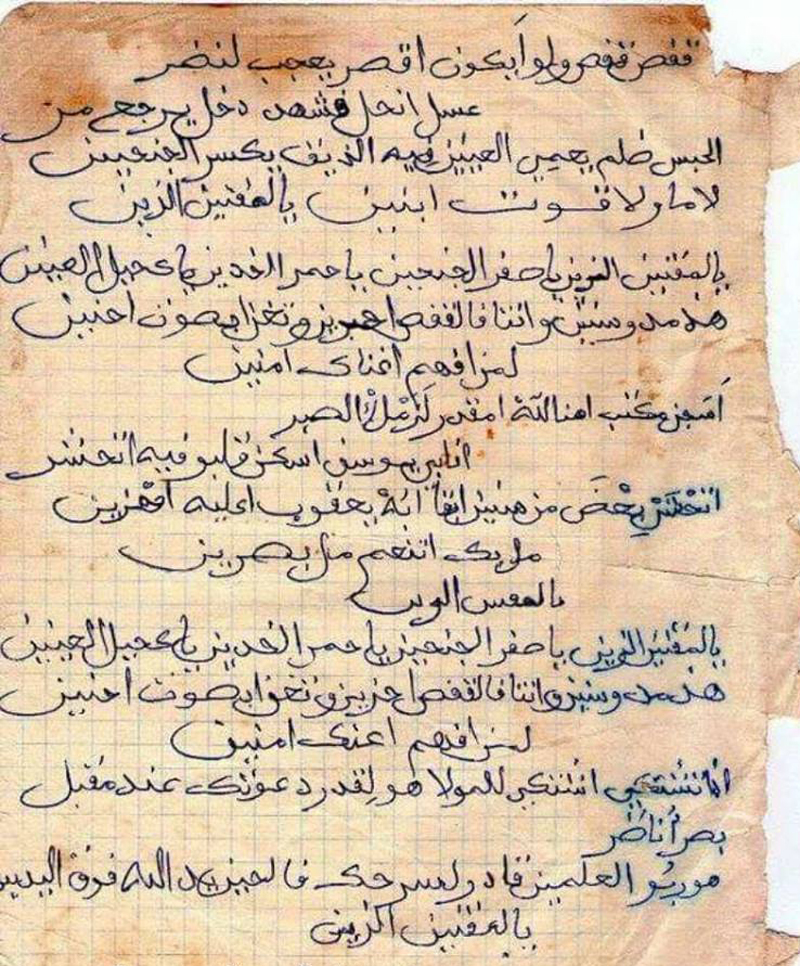 قفص قفص ولو اَيكون اقصر يعجب لنضر
عسل انحل فشهد دخل يرجع من
الحبس ظلم يعمي العينين فيه الذيق يكسر الجنحين
لاما ولا قوت ابنين يالمقنين الزين
يالمقنين الزين ياصفر الجنحين ياحمر الخدين ياكحيل العينين
هذ مد وسنين وانتا فالقفص احزين وتغن ابصوت احنين
لمن افهم اغناك امنين
مكتب اهنا لله امقدر الصبر
انا بي يوسف اسكن قلبو فيه
من يعقوب اعليه
اتنعم من بصرين
يالمقنين الزين ياصفر الجنحين ياحمر الخدين ياكحيل العينين
هذ مد وسنين وانتا فالقفص احزين وتغن ابصوت احنين
لمن افهم اغنك امنين
انا للمولا هو لقدر دعوتك عند مقبل
بصر أناظر
العلمين قادر لسرحك فالحين يد الله فوق اليدين
يالمقنين الزين